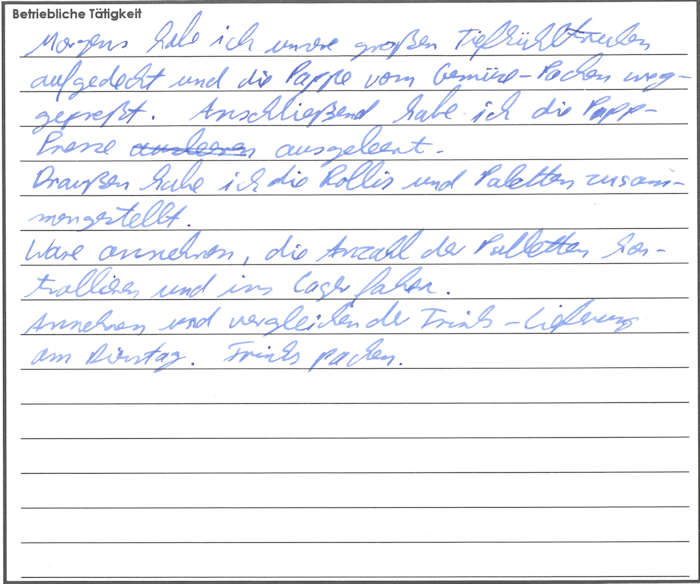 Betriebliche Tätigkeit
Morgens habe ich unsere großen Tiefkühltruhen
aufgedeckt und die Pappe vom Gemüse-Packen weg-
gepreßt. Anschließend habe ich die Papp-
Presse ausleeren ausgeleert.
Draußen habe ich die Rollis und Paletten zusam-
mengestellt.
Ware annehmen, die Anzahl der Palletten kon-
trollieren und ins Lager fahren.
Annehmen und vergleichen der Trinks-Lieferung
am Dienstag. Trinks packen.